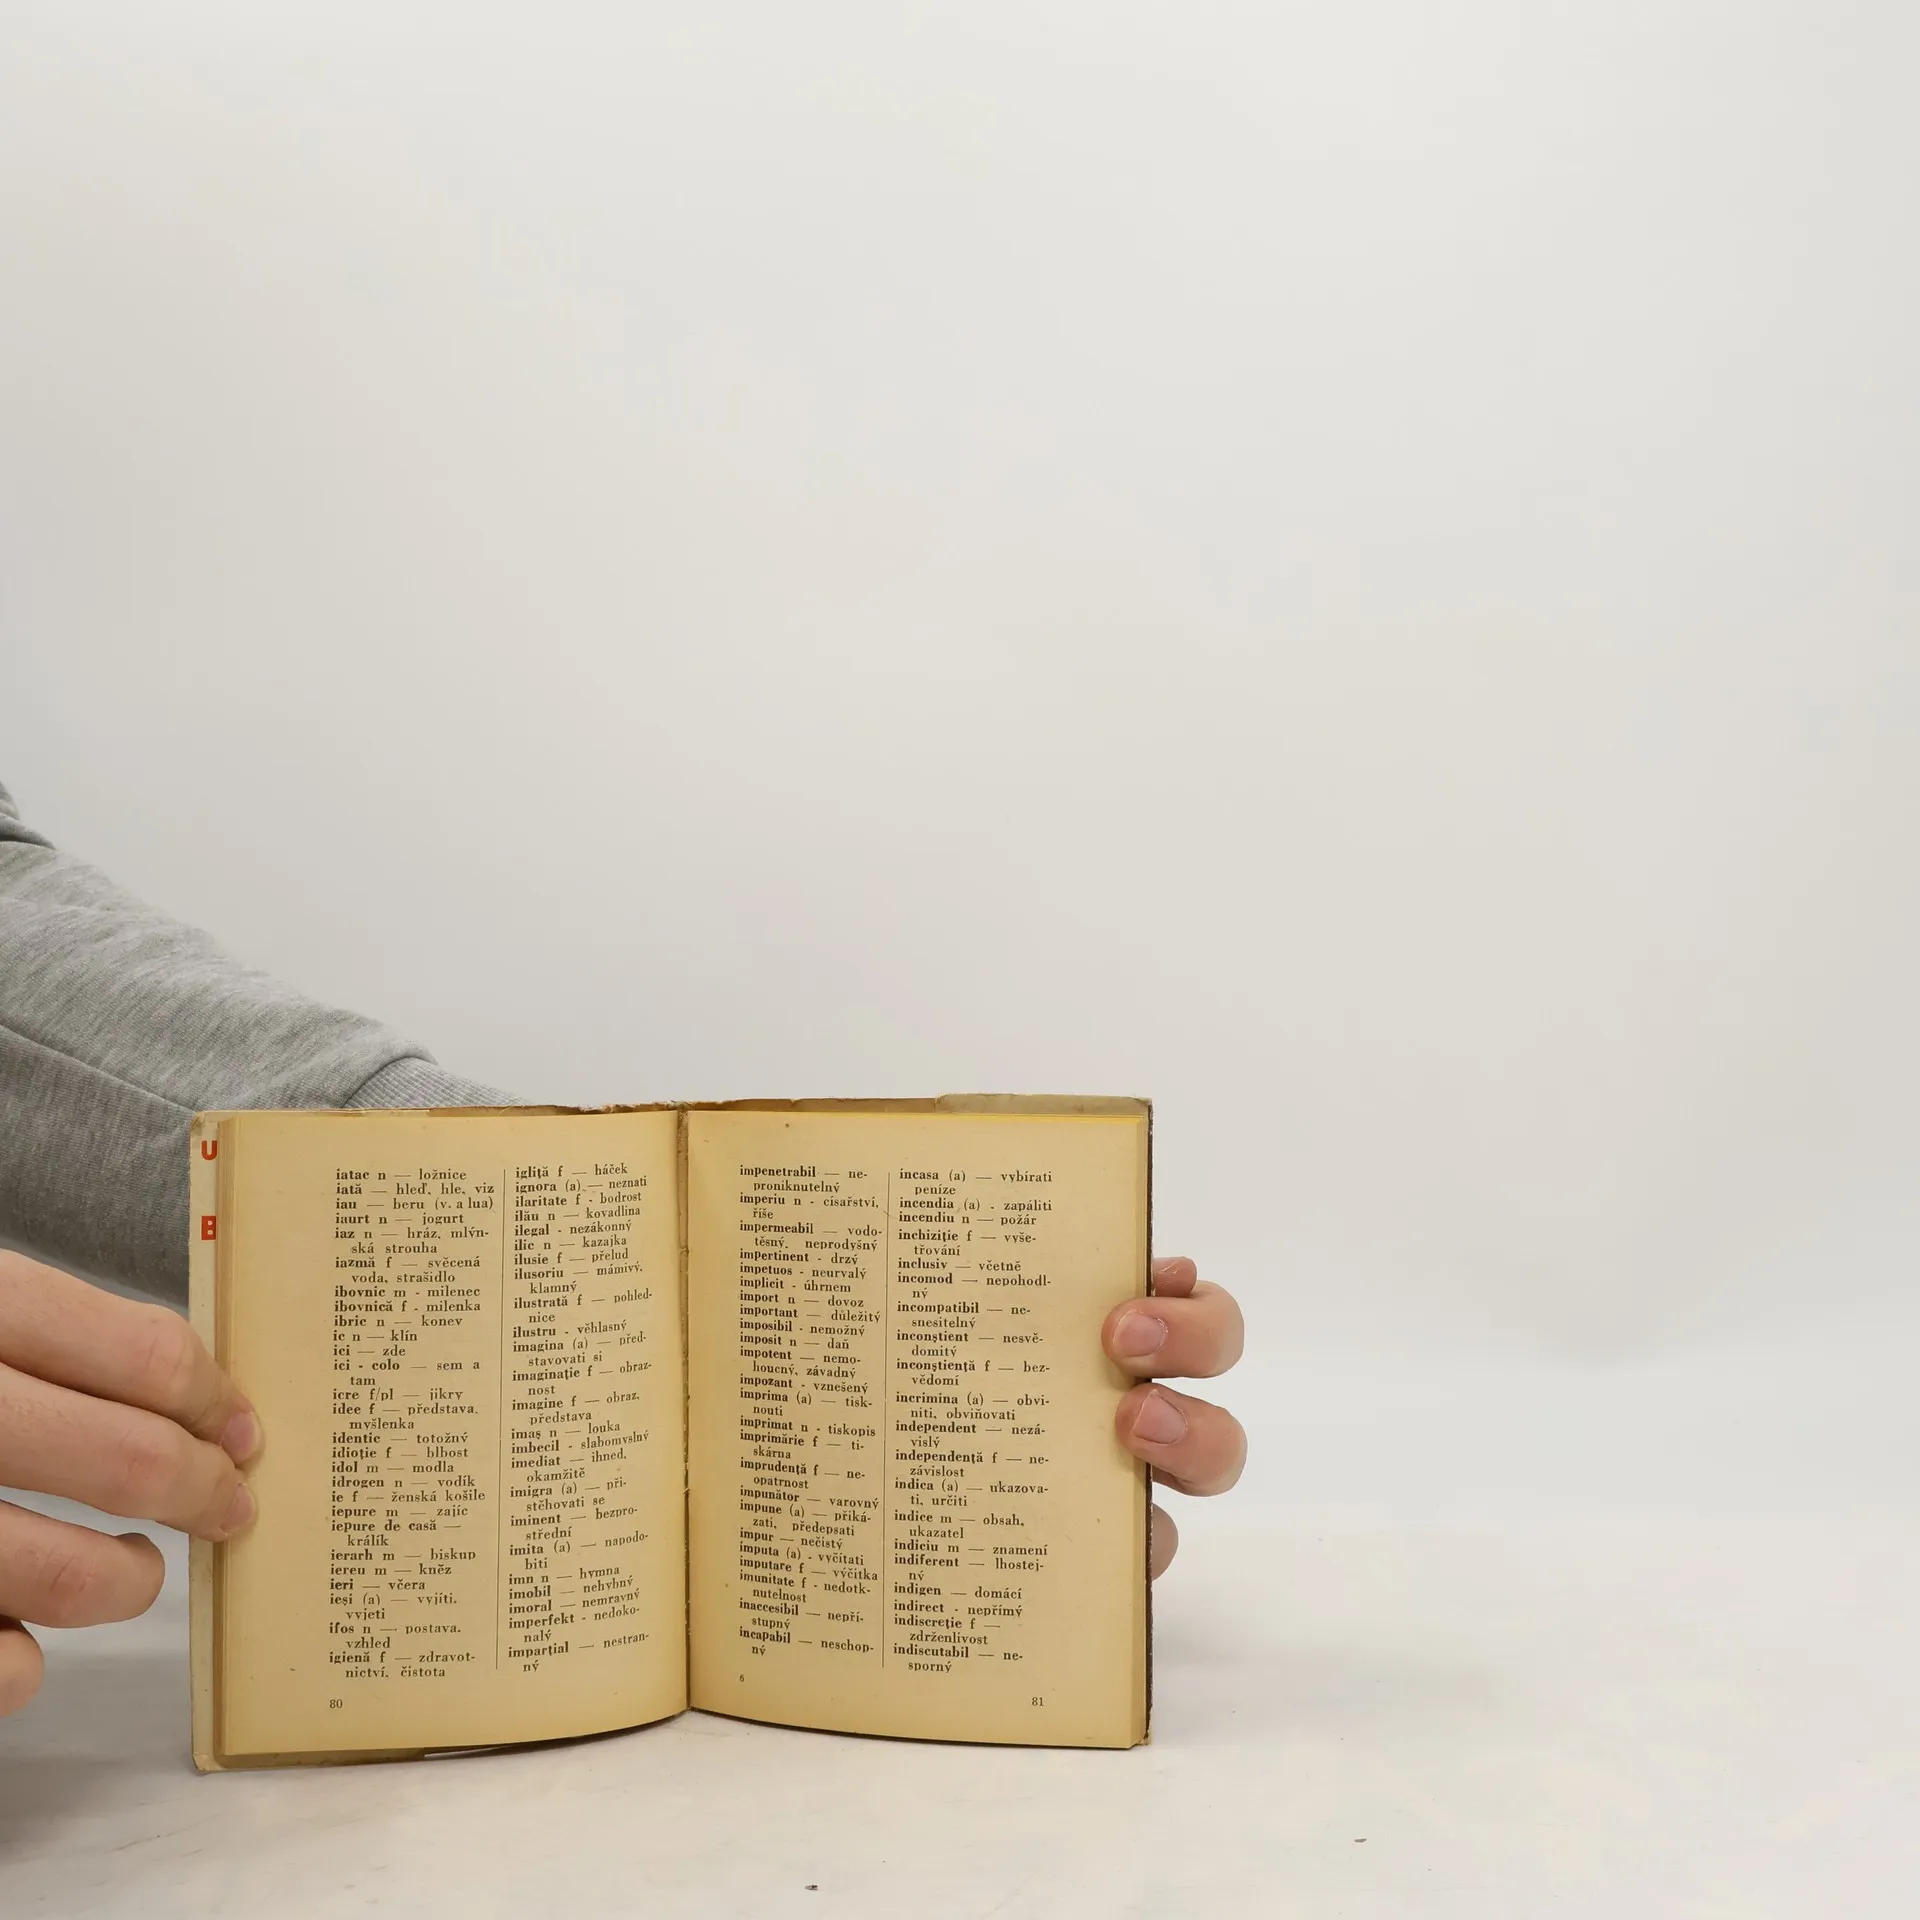 U
B
iatac n — ložnice
iată — hleď, hle, viz
iau — beru (v. a lua)
iaurt n — jogurt
iaz n — hráz, mlýn-
ská strouha
iazmă f — svěcená
voda, strašidlo
ibovnic m - milenec
ibovnică f - milenka
ibric n — konev
ic n — klín
ici — zde
ici - colo — sem a
tam
icre f/pl — jikry
idee f — představa,
myšlenka
identic — totožný
idioţie f — blbost
idol m — modla
idrogen n — vodík
ie f — ženská košile
iepure m — zajíc
iepure de casă —
králík
ierarh m — biskup
iereu m — kněz
ieri — včera
ieşi (a) — vyjíti,
vyjeti
ifos n — postava,
vzhled
igienă f — zdravot-
nictví, čistota
80
igliţă f — háček
ignora (a) — neznati
ilaritate f - bodrost
ilău n — kovadlina
ilegal - nezákonný
ilic n — kazajka
ilusie f — přelud
ilusoriu — mámivý,
klamný
ilustrată f — pohled-
nice
ilustru - věhlasný
imagina (a) — před-
stavovati si
imaginaţie f — obraz-
nost
imagine f — obraz,
představa
imaş n — louka
imbecil - slabomyslný
imediat — ihned,
okamžitě
imigra (a) — při-
stěhovati se
iminent — bezpro-
střední
imita (a) — napodo-
biti
imn n — hymna
imobil — nehybný
imoral — nemravný
imperfekt - nedoko-
nalý
imparţial — nestran-
ný
impenetrabil — ne-
proniknutelný
imperiu n - císařství,
říše
impermeabil — vodo-
těsný, neprodyšný
impertinent - drzý
impetuos - neurvalý
implicit - úhrnem
import n — dovoz
important — důležitý
imposibil - nemožný
imposit n — daň
impotent — nemo-
houcný, závadný
impozant - vznešený
imprima (a) — tisk-
nouti
imprimat n - tiskopis
imprimărie f — ti-
skárna
imprudenţă f — ne-
opatrnost
impunător — varovný
impune (a) — příká-
zati, předepsati
impur — nečistý
imputa (a) - vyčítati
imputare f — výčitka
imunitate f - nedotk-
nutelnost
inaccesibil — nepří-
stupný
incapabil — neschop-
ný
6
incasa (a) — vybírati
peníze
incendia (a) - zapáliti
incendiu n — požár
inchiziţie f — vyše-
třování
inclusiv — včetně
incomod — nepohodl-
ný
incompatibil — ne-
snesitelný
inconştient — nesvě-
domitý
inconştienţă f — bez-
vědomí
incrimina (a) — obvi-
niti, obviňovati
independent — nezá-
vislý
independenţă f — ne-
závislost
indica (a) — ukazova-
ti, určiti
indice m — obsah,
ukazatel
indiciu m — znamení
indiferent — lhostej-
ný
indigen — domácí
indirect - nepřímý
indiscreţie f —
zdrženlivost
indiscutabil — ne-
sporný
81